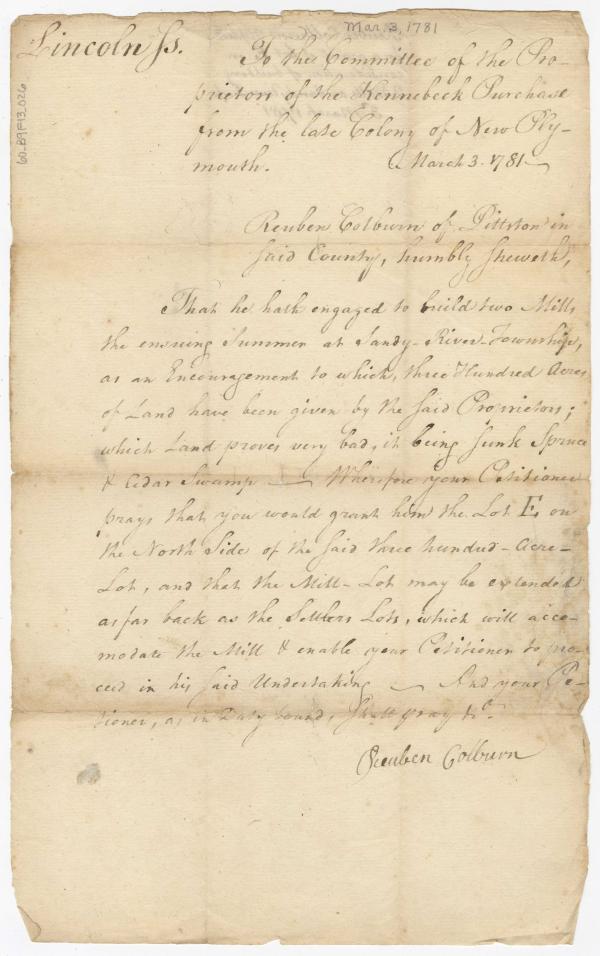 Mar. 3, 1781
Lincoln ss.
To the Committee of the Pro-
prietors of the Kennebeck Purchase
from the late Colony of New Ply-
mouth. March 3. 1781
Reuben Colburn of Pittston in
said County, humbly sheweth,
That he hath engaged to build two Mills
the ensuing Summer at Sandy-River-Township,
as an Encouragement to which, three Hundred Acres
of Land have been given by the said Proprietors;
which Land proves very bad, it being sunk Spruce
& Cedar Swamp — Wherefore your Petitioner
prays that you would grant him the Lot E, on
the North Side of the said three hundred-Acre-
Lot, and that the Mill-Lot may be extended
as far back as the Settlers Lots, which will acco-
modate the Mill & enable your Petitioner to pro-
ceed in his said Undertaking — And your Pe-
titioner, as in Duty bound, shall pray &c.
Reuben Colburn
60-B9F13_026